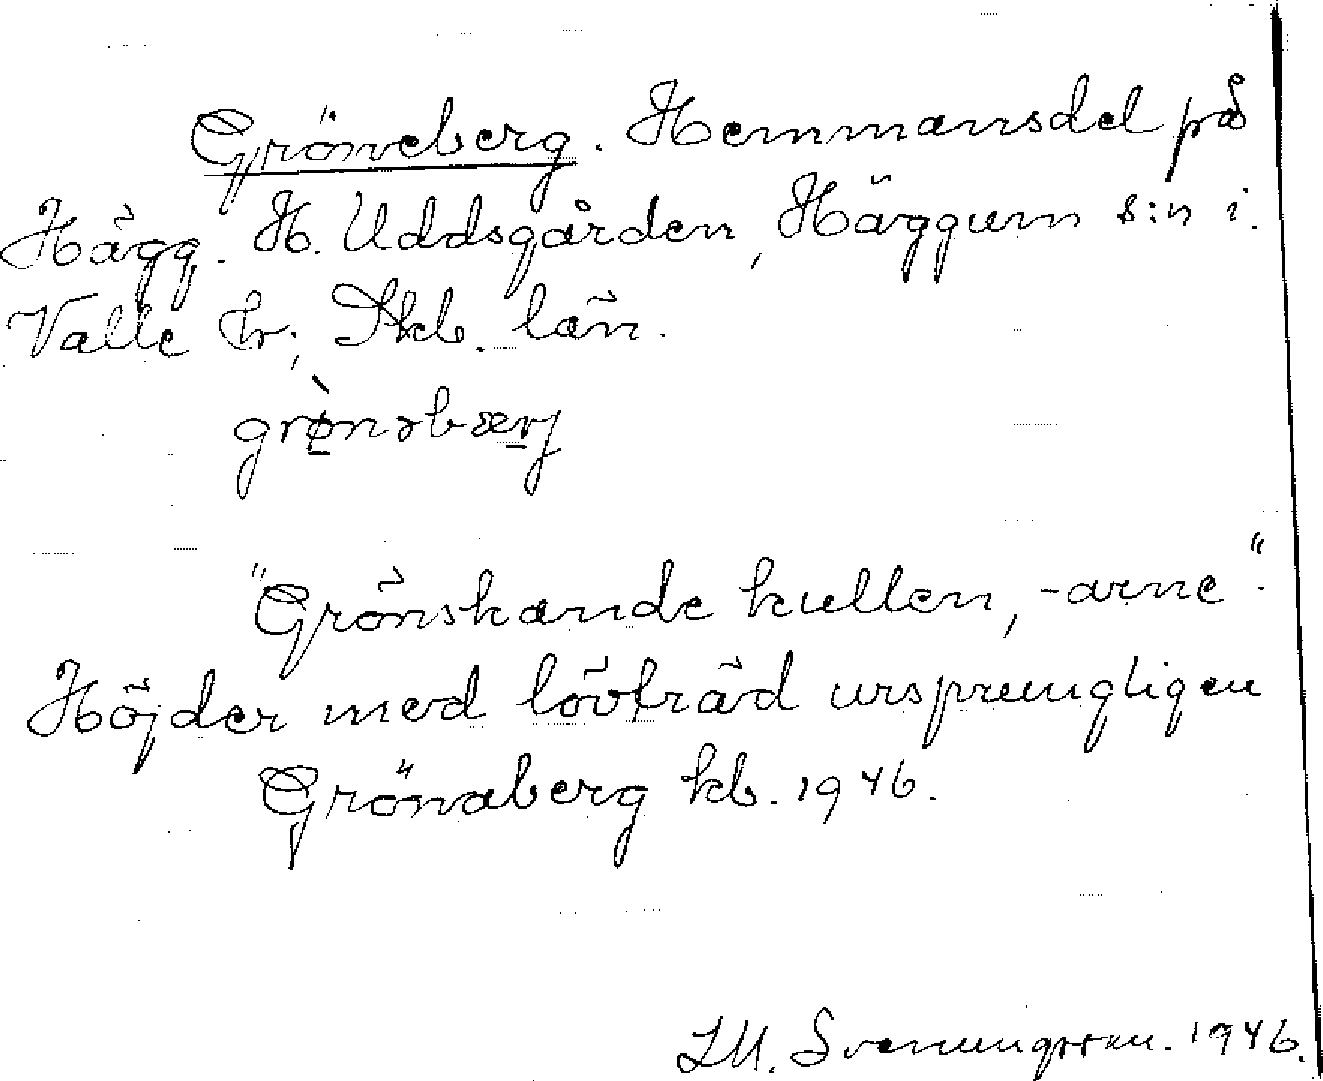 Gröneberg. Hemmansdel på
Hägg. H. Uddsgården, Häggum s:n i
Valle hr; Skb. län.
grø̀nəbærj
"Grönskande kullen, -arne".
Höjder med lövträd ursprungligen
Grönaberg kb. 1946.
Svenungsson. 1946.